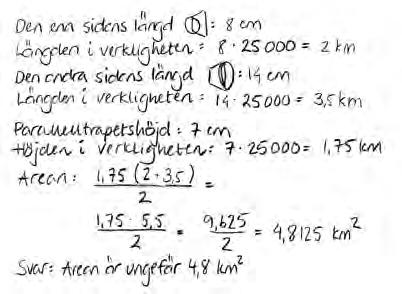 Den ena sidens längd : 8 cm
Längden i verkligheten : 8 · 25 000 = 2 km
Den andra sidens längd : 14 cm
Längden i verkligheten : 14 · 25000 = 3,5 km
Paralleltrapetshöjd : 7 cm
Höjden i verkligheten : 7 · 25000 = 1,75 km
Arean : 1,75 (2+3,5) / 2 =
1,75 · 5,5 / 2 = 9,625 / 2 = 4,8125 km²
Svar: Arean är ungefär 4,8 km²